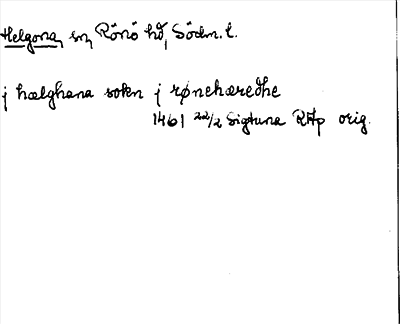 Helgona, sn, Rönö hd, Södm. l.
j hælghana sokn j rønehæredhe
1461 22/2 Sigtuna RAp orig.